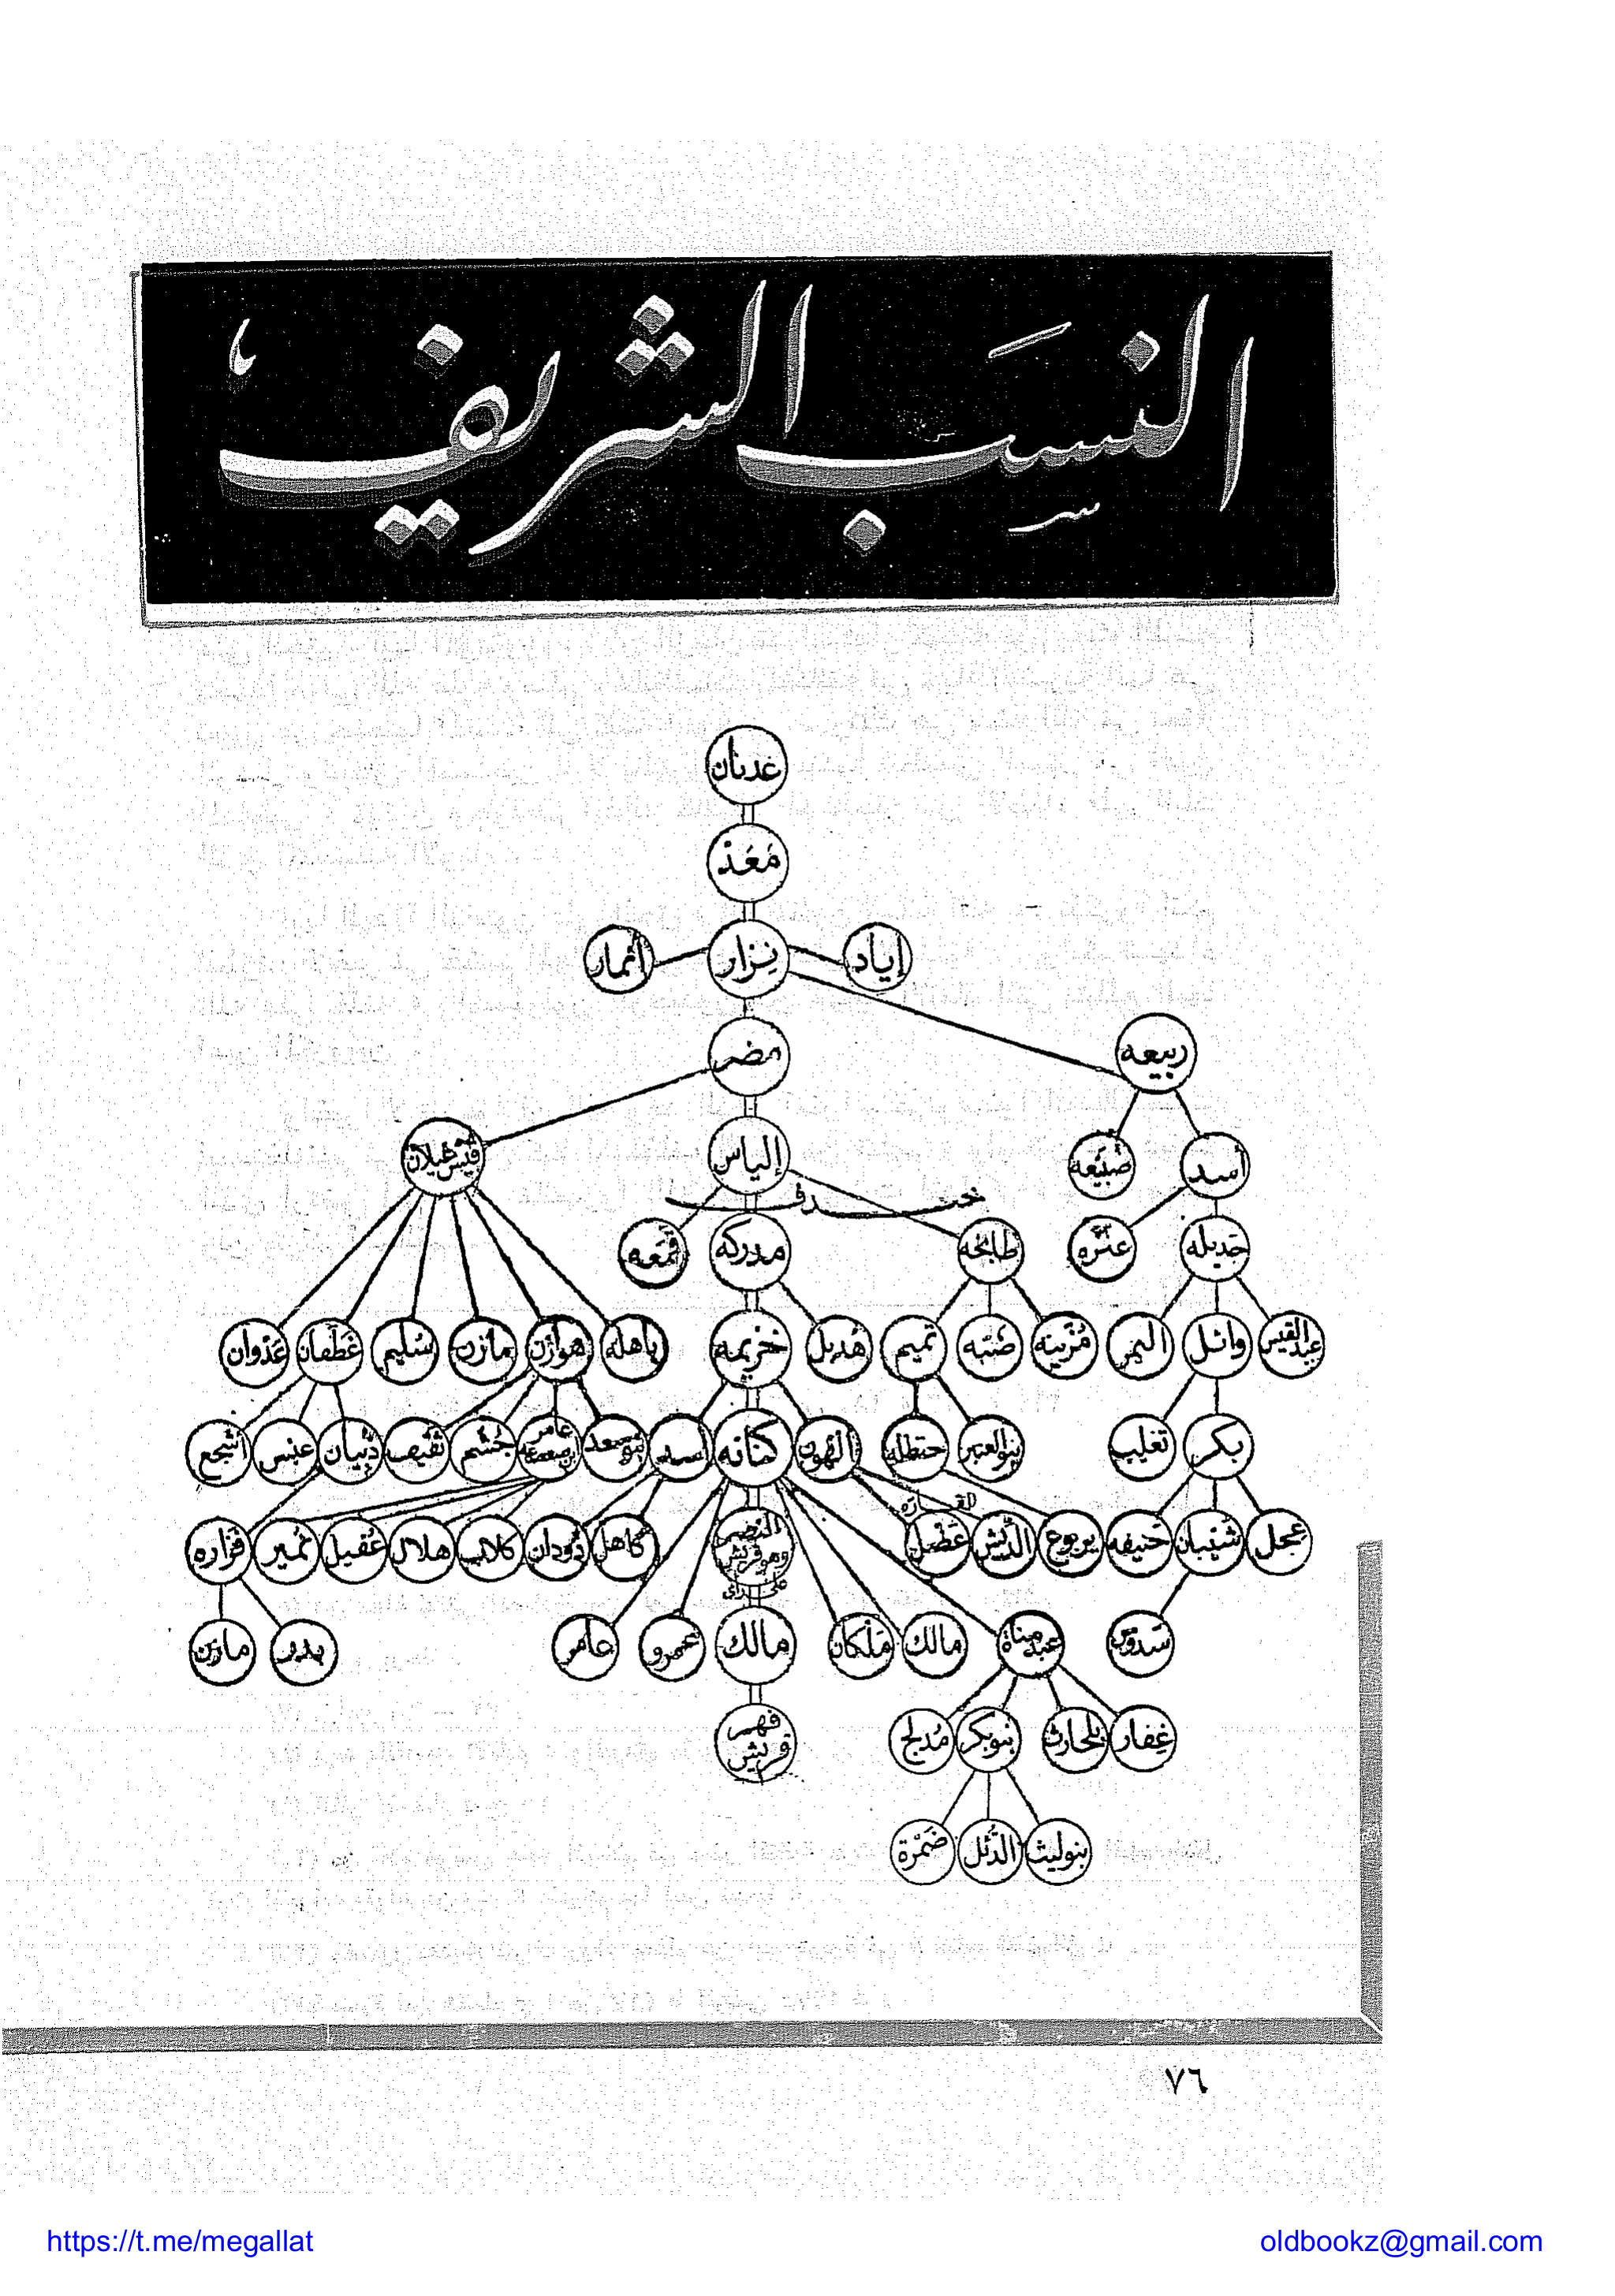 النسب الشريف
عدنان
مَعَدْ
إياد نِزار أنمار
ربيعه
مضر
ضبيعه أسد
إلياس
قيس عيلان
خندف
جديله عنزه
طابخه
مدركه
قمعه
عبد القيس وائل النمر
مُزينه ضبّه تميم
هذيل خزيمه
باهله هوازن مازن سُليم غطفان عَدْوان
بكر تغلب
بنو العنبر حنظله
الهون كنانه أسد
بنو سعد عامر بن صعصعه جُشَم ثقيف ذُبيان عبس أشجع
القاره
عجل شيبان حنيفه يربوع الدِّيش عَضَل
النضر وهو قريش
على رأى
كاهل دُودان كلاب هلال عُقيل نُمير فزاره
سدوس
عبد مناة مالك مَلْكان مالك عمرو عامر
بدر مازن
غِفار بلحارث بنو بكر مُدلج
فهر قريش
بنو ليث الدُّئل ضَمْرة
٧٦
https://t.me/megallat oldbookz@gmail.com